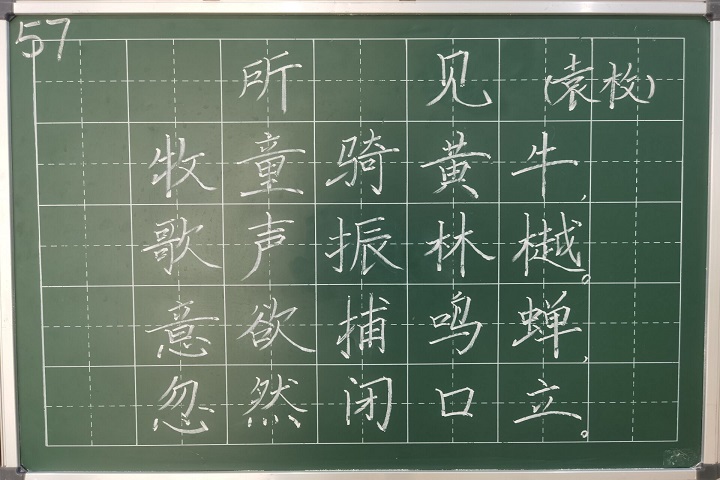 57
所见(袁枚)
牧童骑黄牛,
歌声振林樾。
意欲捕鸣蝉,
忽然闭口立。